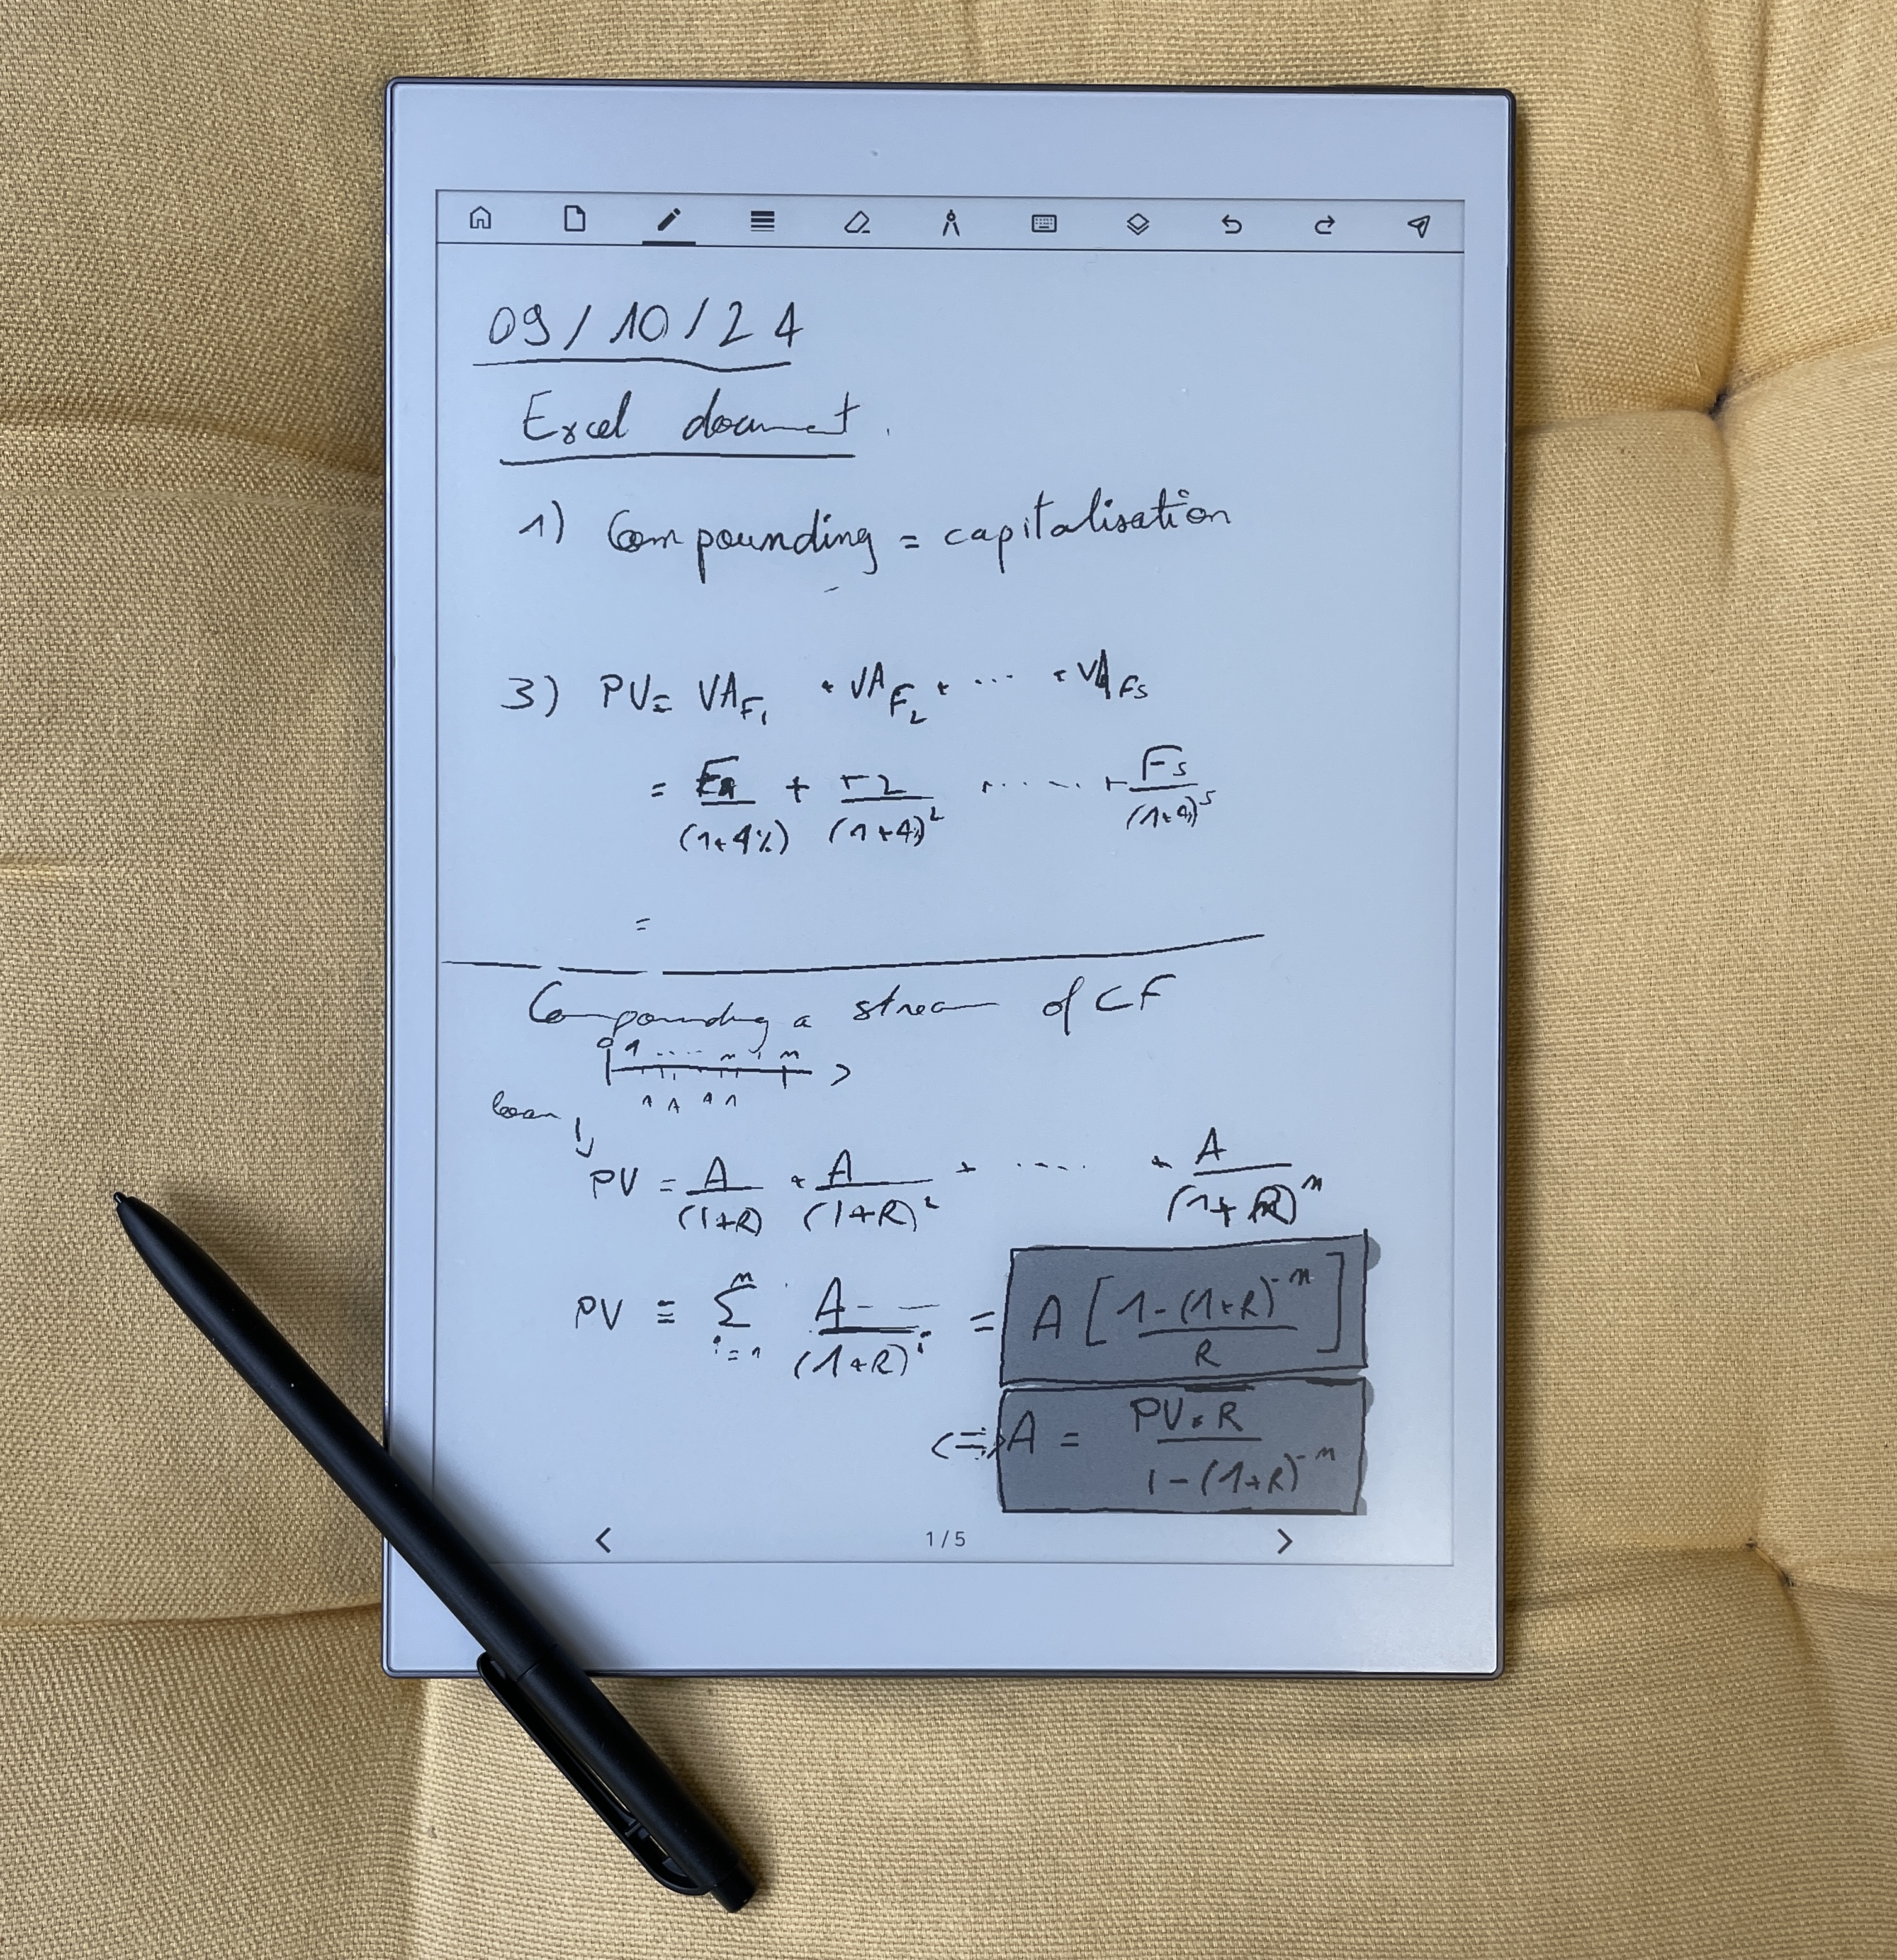 09/10/24
Excel document.
1) Compounding = capitalisation
3) PV = VA_F₁ + VA_F₂ + ... + VA_F₅
= F₁/(1+4%) + F₂/(1+4%)² + ..... + F₅/(1+4%)⁵
=
Compounding a stream of CF
0 1 .... n
A A A A
loan ↓
PV = A/(1+R) + A/(1+R)² + .... + A/(1+R)ⁿ
PV = Σ_{i=1}^{n} A/(1+R)^i = A [ (1-(1+R)^-n) / R ]
<=> A = PV × R / (1-(1+R)^-n)
1 / 5